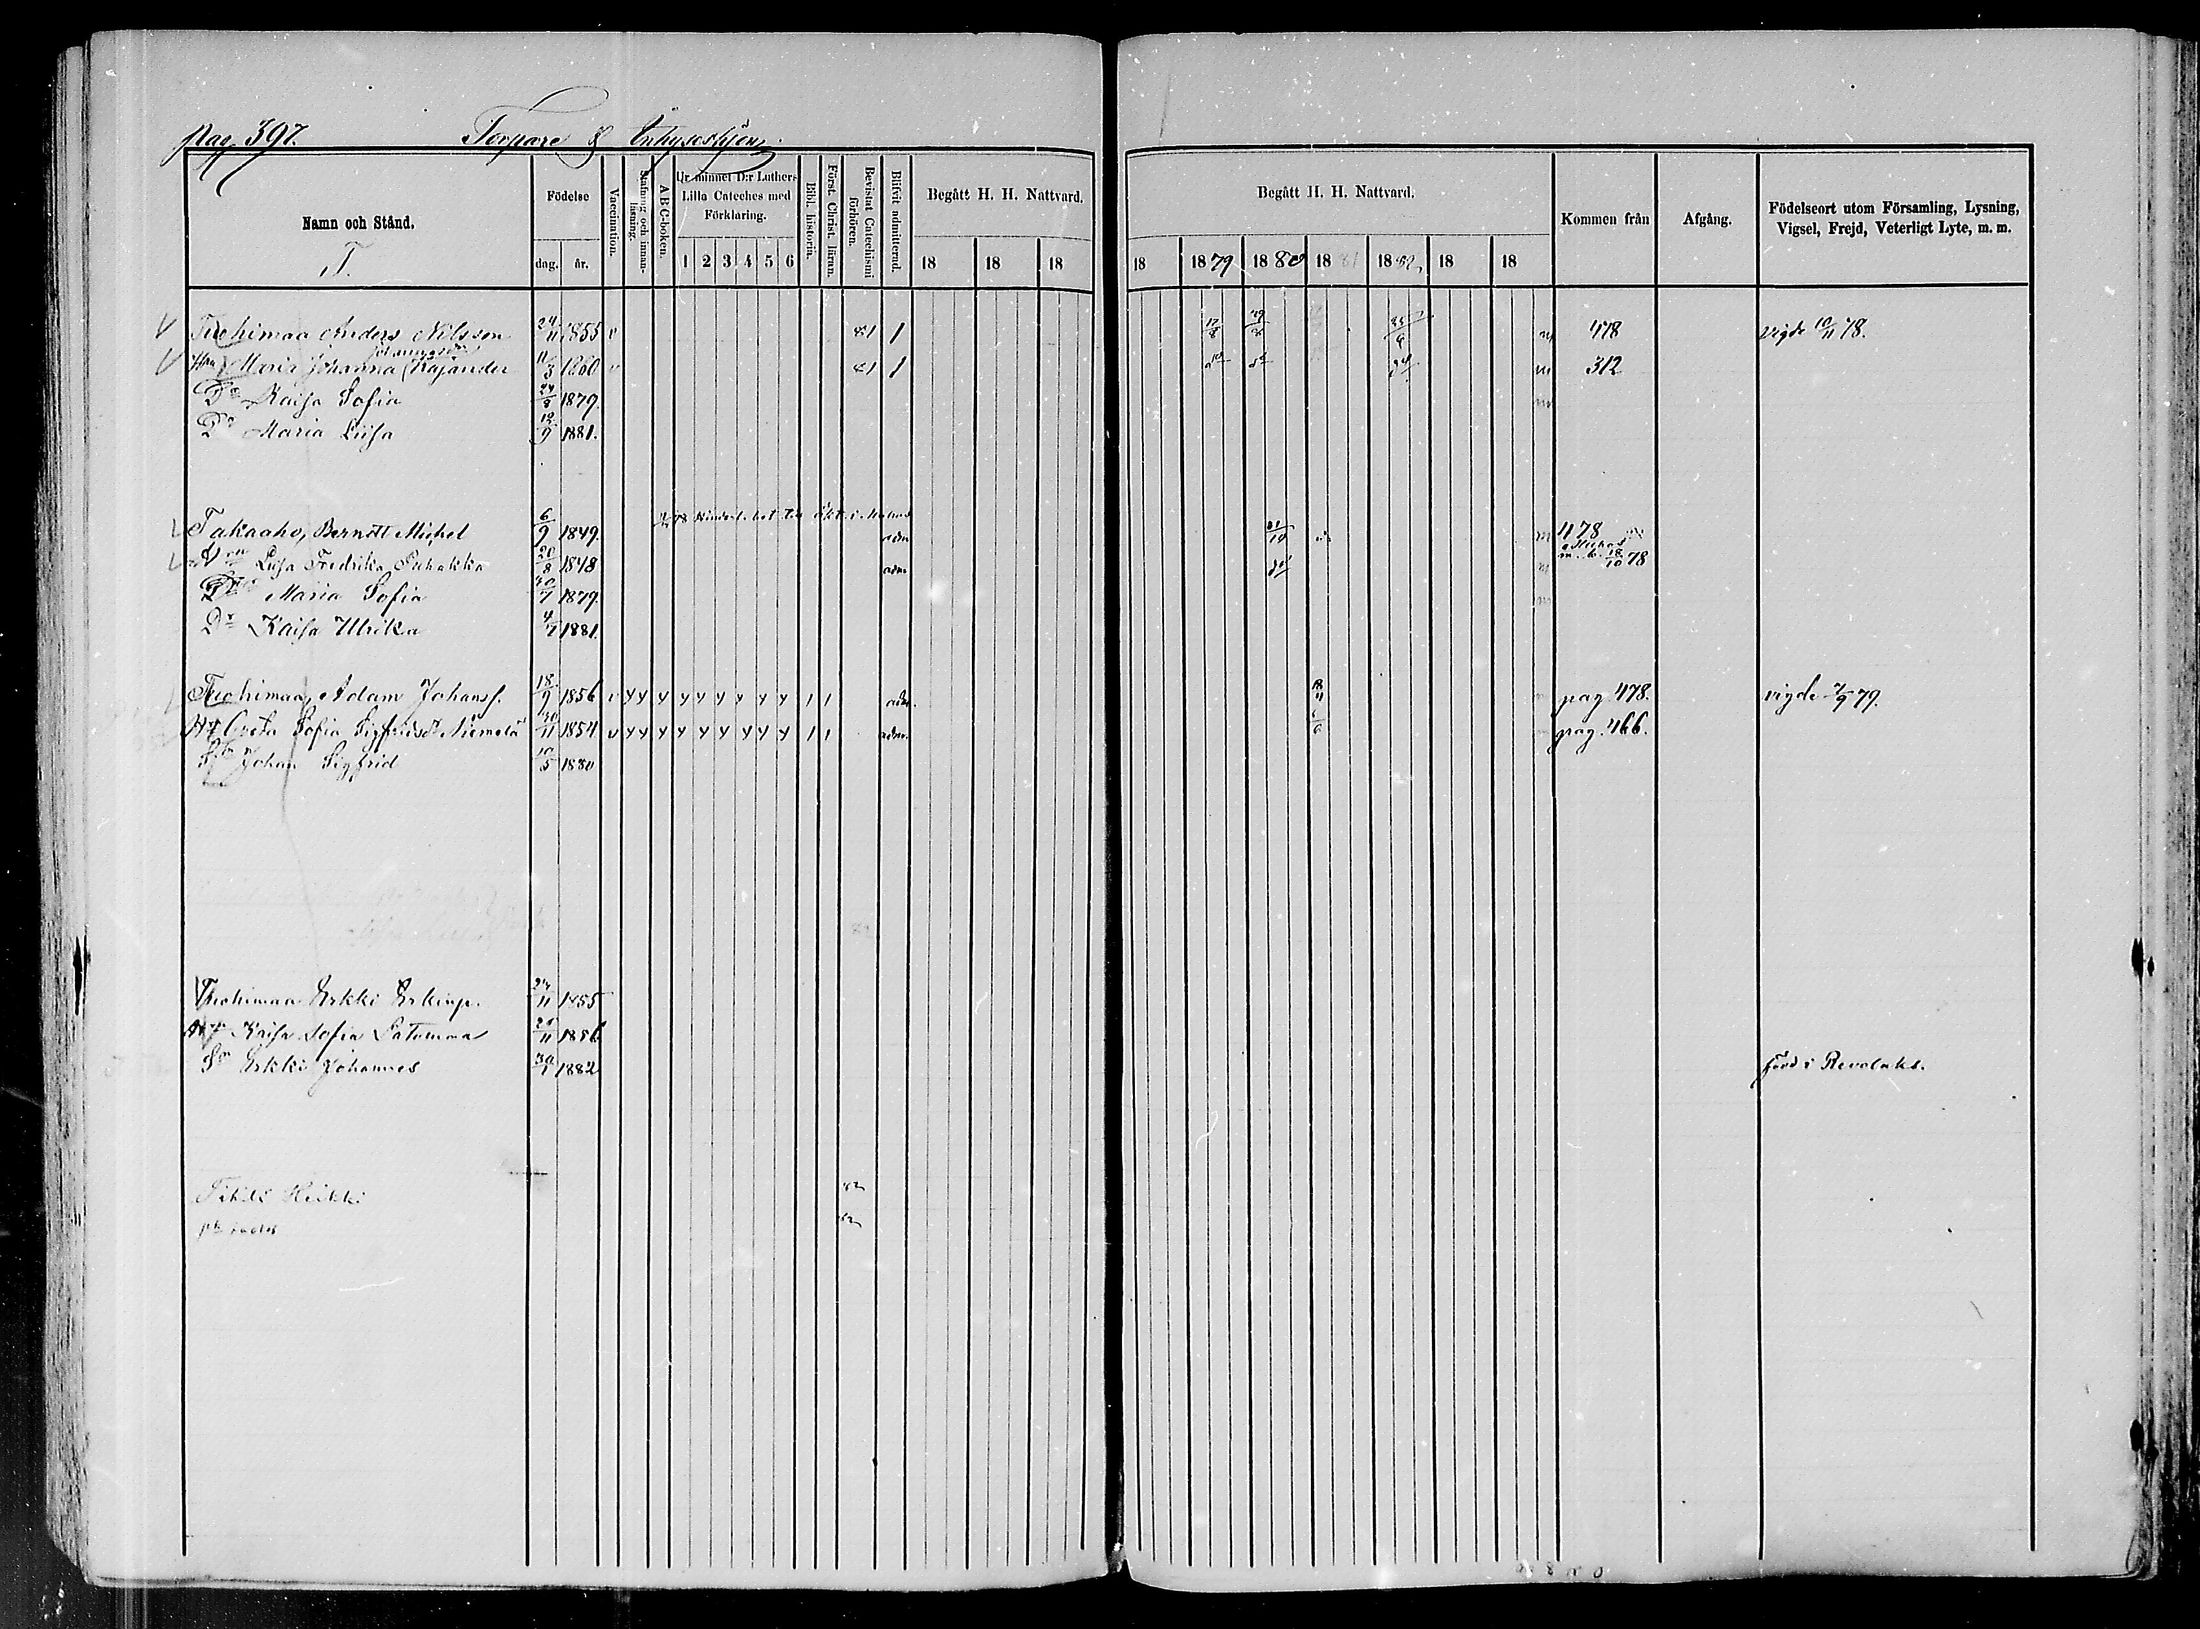 Pag. 397. Torpare & Inhyseshjon
Namn och Stånd. Födelse Vaccination. Stafning och innanläsning. ABC-boken. Ur minnet D:r Luthers Lilla Cateches med Förklaring. Bibl. historia. Först. Christ. läran. Bevistat Catechismi förhören. Blifvit admitterad. Begått H. H. Nattvard. Begått H. H. Nattvard. Kommen från Afgång. Födelseort utom Församling, Lysning, Vigsel, Frejd, Veterligt Lyte, m. m.
T. dag. år. 1 2 3 4 5 6 18 18 18 18 1879 1880 1881 1882 18 18
Tuohimaa Anders Nilsson 24/11 1855 v 81 1 478 vigde 10/11 78.
Hu Maria Johanna Kajander 11/3 1860 v 81 1 m 312
Dr Kaisa Sofia 1879. m
Dr Maria Liisa 12/9 1881.
Takaaho, Berndt Michel 6/9 1849. adm m 478
Liisa Fredrika Puhakka 20/8 1848 adm m 18/10 78
Dr Maria Sofia 30/7 1879. m
Dr Kaisa Ulrika 4/7 1881.
Tuohimaa, Adam Johanss. 18/9 1856 v y y y y y y y y y 1 1 adm. pag 478. vigde 7/9 79.
Hu Greta Sofia Sigfridsdr Niemelä 30/11 1854 v y y y y y y y y y 1 1 adm. pag. 466.
Sn Johan Sigfrid 10/5 1880
Tuohimaa Erkki Erkinp. 24/11 1855
Kaisa Sofia Latomaa 1856
Sn Erkki Johannes 30/1 1882 född i Revolaks.
Heikki 82
82